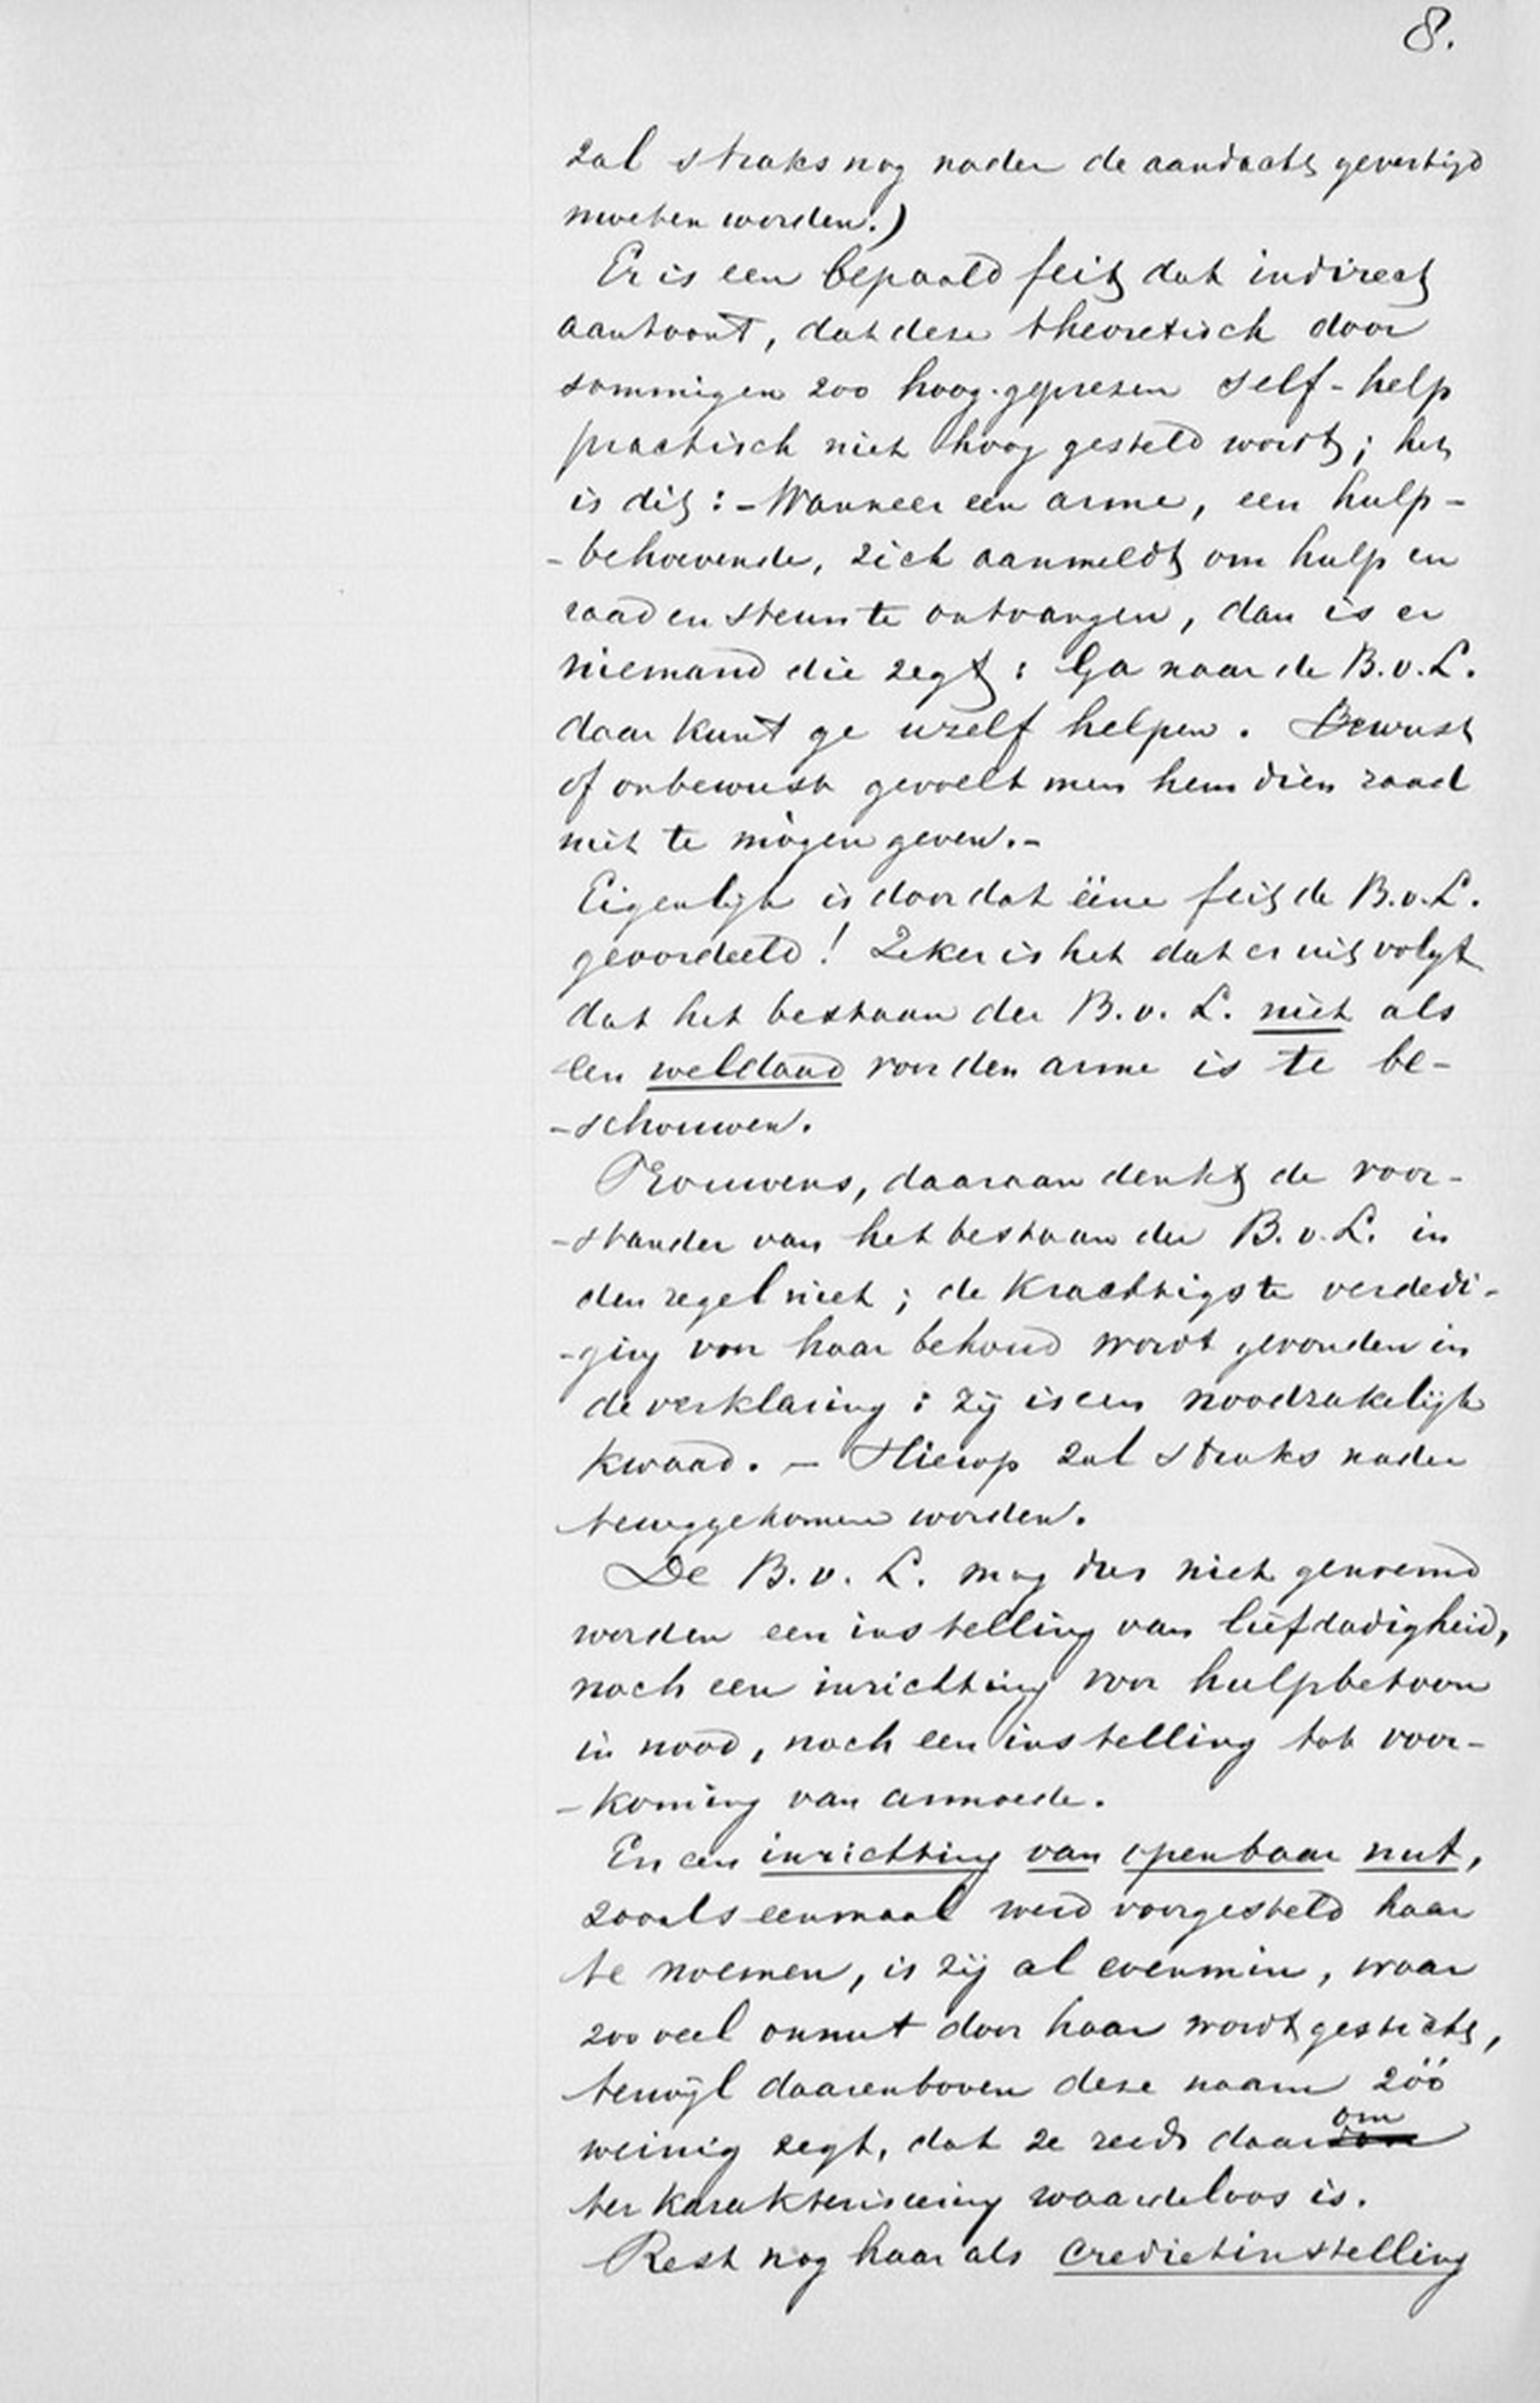 8.
zal straks nog nader de aandacht gevestigd
moeten worden.)
Er is een bepaald feit dat indirect
aantoont, dat deze theoretisch door
sommigen zoo hoog-geprezen self-help
practisch niet hoog gesteld wordt; het
is dit: - Wanneer een arme, een hulp-
-behoevende, zich aanmeldt om hulp en
raad en steun te ontvangen, dan is er
niemand die zegt: Ga naar de B.v.L.
daar kunt ge uzelf helpen. Bewust
of onbewust gevoelt men hem dien raad
niet te mògen geven.-
Eigenlijk is door dat ééne feit de B.v.L.
geoordeeld! Zeker is het dat er uit volgt
dat het bestaan der B.v.L. niet als
een weldaad voor den arme is te be-
-schouwen.
Trouwens, daaraan denkt de voor-
-stander van het bestaan der B.v.L. in
den regel niet; de krachtigste verdedi-
-ging voor haar behoud wordt gevonden in
de verklaring: zij is een noodzakelijk
kwaad. - Hierop zal straks nader
teruggekomen worden.
De B.v.L. mag dus niet genoemd
worden een instelling van liefdadigheid,
noch een inrichting voor hulpbetoon
in nood, noch een instelling tot voor-
-koming van armoede.
En een inrichting van openbaar nut,
zooals eenmaal werd voorgesteld haar
te noemen, is zij al evenmin, waar
zooveel onnut door haar wordt gesticht,
terwijl daarenboven deze naam zóó
weinig zegt, dat ze reeds daarom
ter karakteriseering waardeloos is.
Rest nog haar als credietinstelling